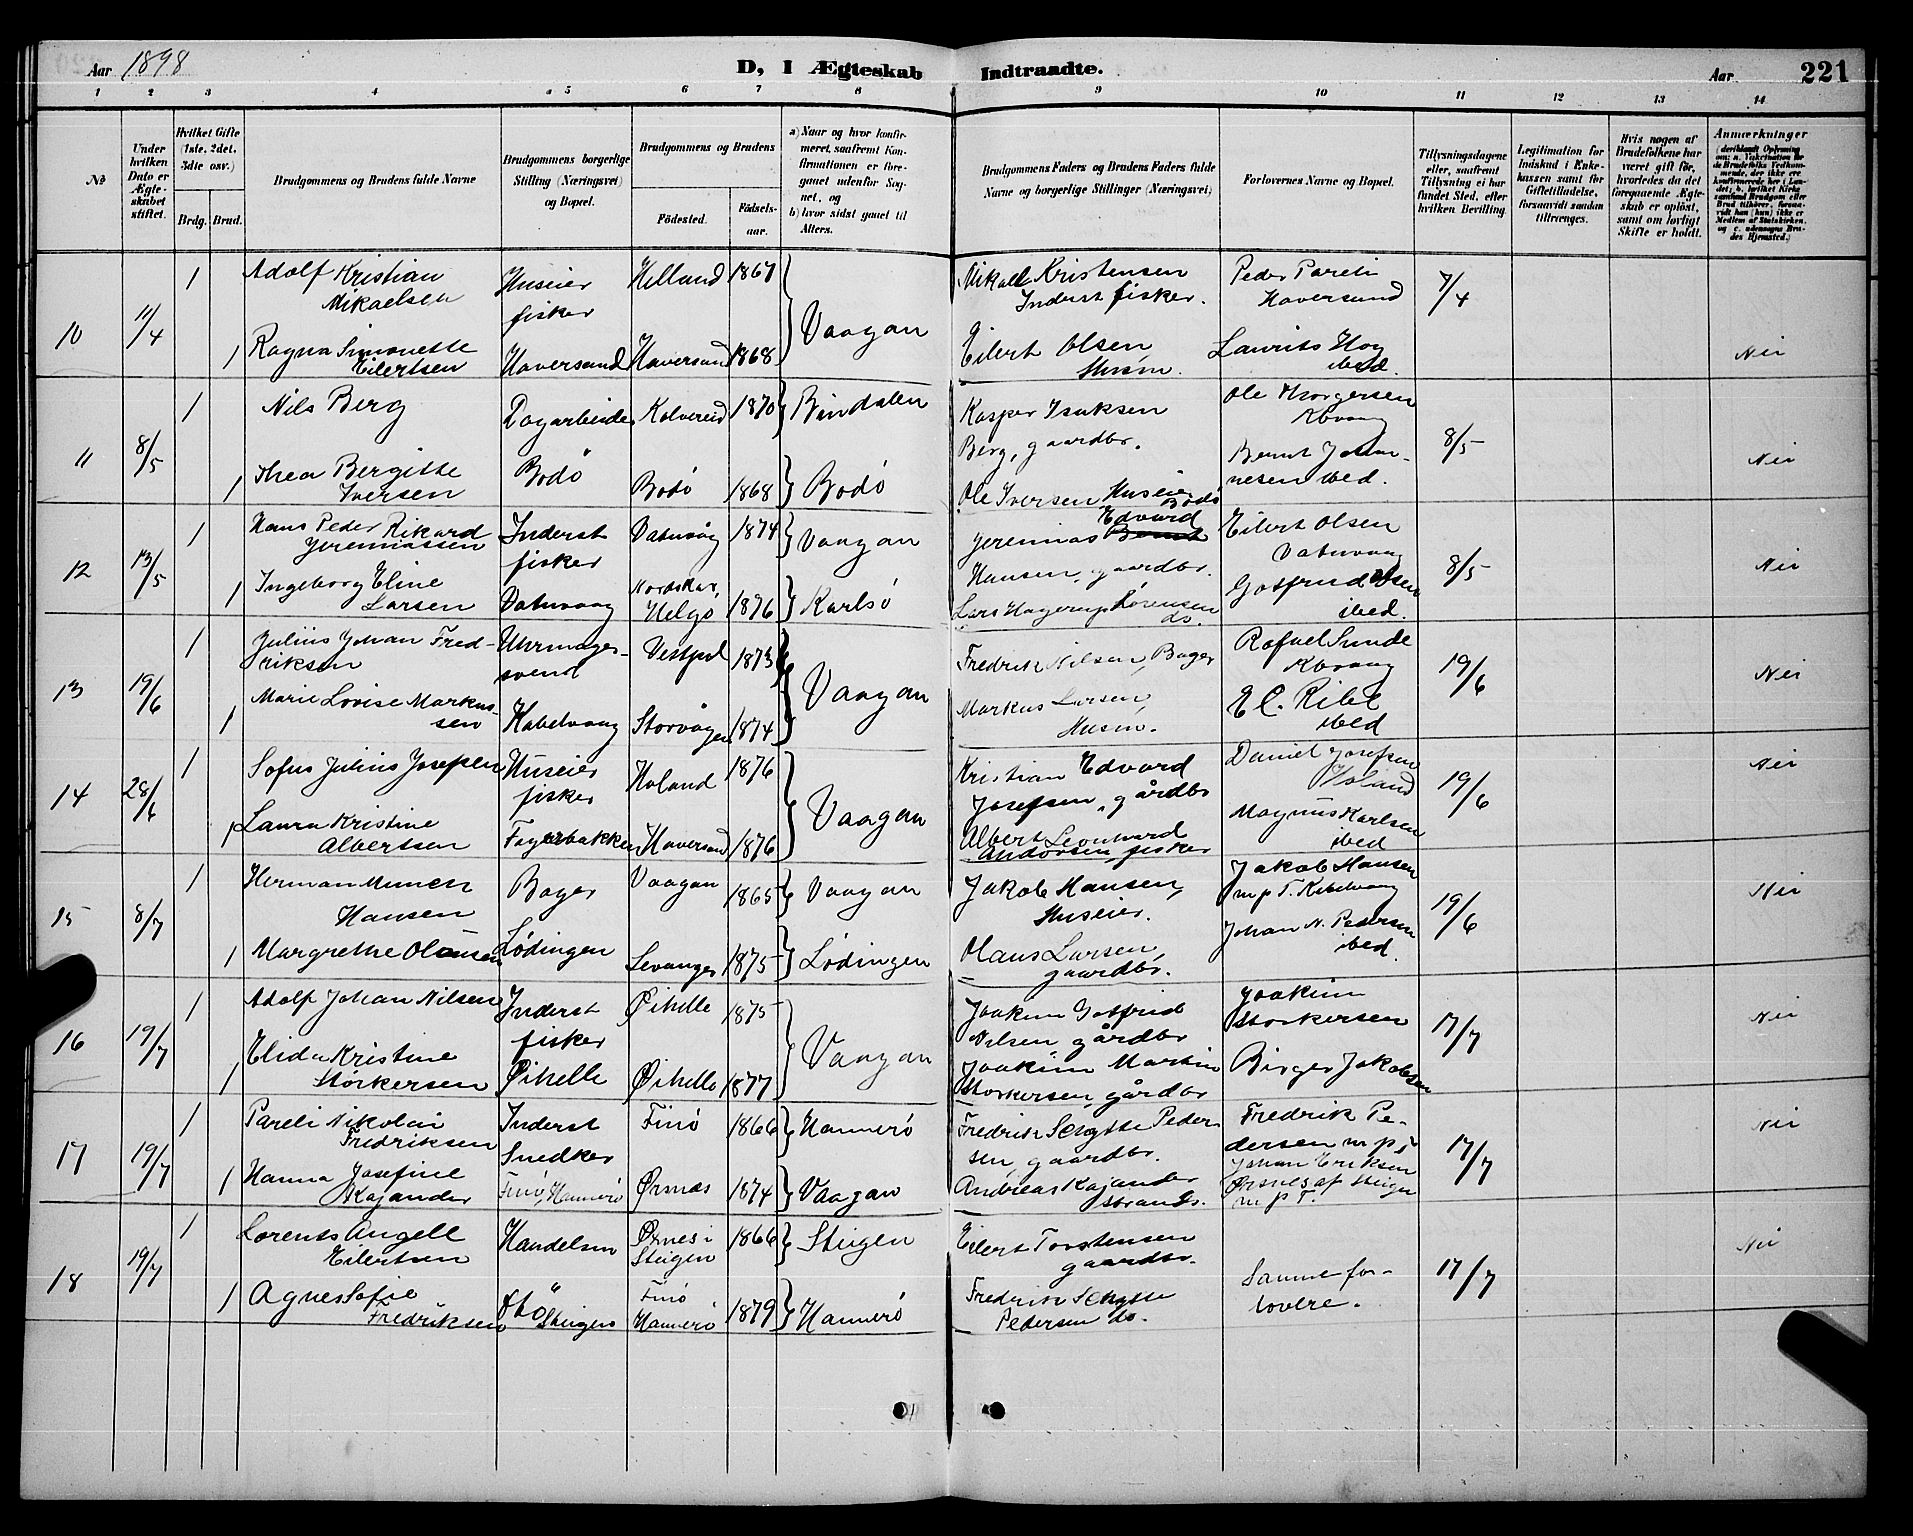 Aar 1898
D, I Ægteskab Indtraadte.
Aar 221
1 2 3 4 5 6 7 8 9 10 11 12 13 14
No
Under hvilken Dato er Ægteskabet stiftet.
Hvilket Gifte (1ste, 2det, 3dte osv.)
Brdg. Brud.
Brudgommens og Brudens fulde Navne
Brudgommens borgerlige Stilling (Næringsvei) og Bopæl.
Brudgommens og Brudens
Fødested. Fødselsaar.
a) Naar og hvor konfirmeret, saafremt Konfirmationen er foregaaet udenfor Sognet, og
b) hvor sidst gaaet til Alters.
Brudgommens Faders og Brudens Faders fulde Navne og borgerlige Stillinger (Næringsvei)
Forlovernes Navne og Bopæl.
Tillysningsdagene eller, saafremt Tillysning ei har fundet Sted, efter hvilken Bevilling.
Legitimation for Indskud i Enkekassen samt for Giftetilladelse, forsaavidt saadan tiltrænges.
Hvis nogen af Brudefolkene har været gift før, hvorledes da det foregaaende Ægteskab er opløst, samt om lovligt Skifte er holdt.
Anmærkninger
10 11/4 1 Adolf Kristian Mikaelsen Huseier fisker Helland 1867 Vaagan Mikael Kristensen Inderst fisker. Peder Pareli Haversund 7/4
1 Ragna Simonette Eilertsen Haversund Haversund 1868 Eilert Olsen Husm. Laurits Hog ibed. Nei
11 8/5 1 Nils Berg Dagarbeider Kolvereid 1870 Bindalen Kasper Isaksen Berg, gaardbr. Ole Thorgersen Kbvaag 8/5
1 Thea Bergitte Iversen Bodö Bodö 1868 Bodö Ole Iversen Huseier Bodö Bernt Johannesen ibed. Nei
12 13/5 1 Hans Peder Rikard Jeremiassen Inderst fisker Vatnvåg 1874 Vaagan Jeremias Bernt Edvard Hansen, gaardbr. Eilert Olsen Vatnvaag 8/5
1 Ingeborg Eline Larsen Vatnvaag Nordskar, Helgö 1876 Karlsö Lars Hagerup Sörensen do. Gotfrid Olsen ibed. Nei
13 19/6 1 Julius Johan Fredriksen Uhrmagersvend Vestpol 1873 Vaagan Fredrik Nilsen, Bager Rafael Sunde Kbvaag 19/6
1 Marie Lovise Markussen Kabelvaag Storvågen 1874 Markus Larsen, Husm. E C. Ribe ibed Nei
14 28/6 1 Sofus Julius Josefsen Huseier fisker Holand 1876 Vaagan Kristian Edvard Josefsen, gårdbr Daniel Josefsen Holand 19/6
1 Laura Kristine Albertsen Fagerbakken Haversund 1876 Albert Leonhard Andorsen, fisker Magnus Karlsen ibed Nei
15 8/7 1 Herman Hansen Bager Vaagan 1865 Vaagan Jakob Hansen, Huseier. Jakob Hansen m p T. Kabelvaag 19/6
1 Margrethe Olausen Lödingen Levanger 1875 Lödingen Olaus Larsen, gaardbr. Johan N. Pedersen ibed. Nei
16 19/7 1 Adolf Johan Nilsen Inderst fisker Øihelle 1875 Vaagan Joakim Gotfrid Nilsen gårdbr Joakim Storkersen 17/7
1 Elida Kristine Storkersen Øihelle Øihelle 1877 Joakim Martin Storkersen, gårdbr Birger Jakobsen Nei
17 19/7 1 Pareli Nikolai Fredriksen Inderst Snedker Finö 1866 Hammerö Fredrik Schytte Pedersen, gaardbr. Fredrik Pedersen m p T 17/7
1 Hanna Josefine Kajander Finö, Hammerö Ørsnes 1874 Vaagan Andreas Kajander Strands. Johan Eriksen Ørsnes af Steigen m p T. Nei
18 19/7 1 Lorents Angell Eilertsen Handelsm Ørnes i Steigen 1866 Steigen Eilert Torstensen gaardbr. Samme forlovere. 17/7
1 Agnes Sofie Fredriksen Steigen Finö Hammerö 1879 Hammerö Fredrik Schytte Pedersen do. Nei